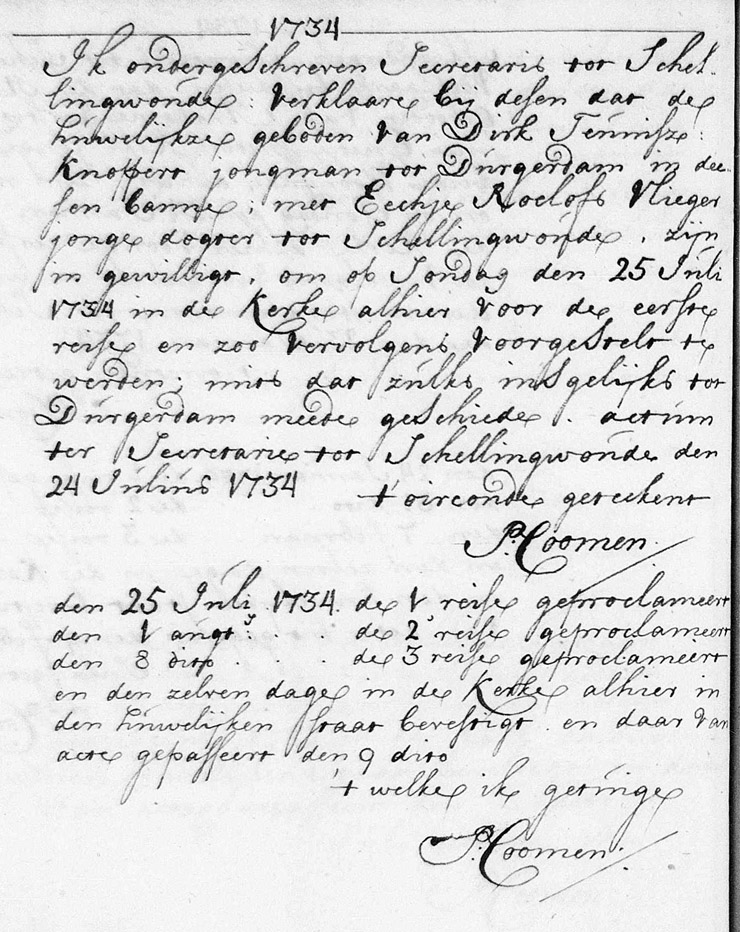 1734
Ik ondergeschreven Secretaris tot Schel-
lingwoude: verklaare bij desen dat de
huwelijkze geboden van Dirk Teunisze:
Knoppert jongman tot Durgerdam in dee-
sen banne; met Eechje Roelofs Vlieger
jonge dogter tot Schellingwoude, zijn
in gewilligt, om op Sondag den 25 Juli
1734 in de Kerke alhier voor de eerste
reise en zoo vervolgens voorgestelt te
werden; mits dat zulks insgelijks tot
Durgerdam meede geschiede. actum
ter Secretarie tot Schellingwoude den
24 Julius 1734 t oirconde geteekent
P: Coomen.
den 25 Juli 1734. de 1 reise geproclameert
den 1 augts: de 2e reise geproclameert
den 8 dito . . . de 3 reise geproclameert
en den zelven dage in de Kerke alhier in
den huwelijken staat bevestigt. en daar van
acte gepasseert den 9 dito
t welke ik getuige
P: Coomen.